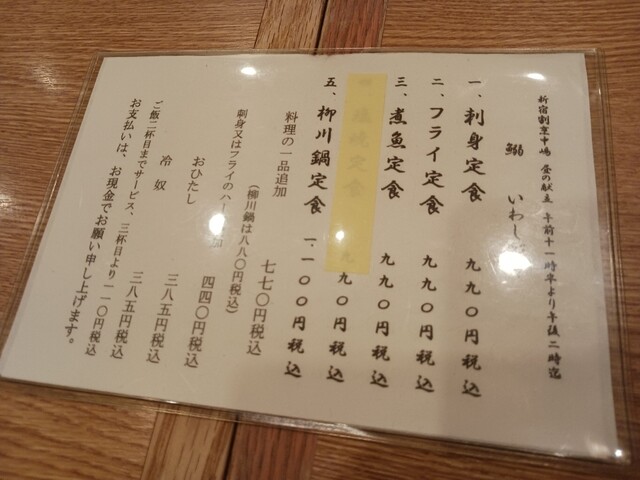 新宿割烹中嶋 昼の献立 午前十一時半より午後二時迄
鰯 いわし
一、刺身定食 九九〇円税込
二、フライ定食 九九〇円税込
三、煮魚定食 九九〇円税込
九〇円税込
五、柳川鍋定食 一、一〇〇円税込
料理の一品追加 七七〇円税込
(柳川鍋は八八〇円税込)
刺身又はフライのハー 加 四四〇円税込
おひたし 三八五円税込
冷奴 三八五円税込
ご飯二杯目までサービス、三杯目より一一〇円税込
お支払いは、お現金でお願い申し上げます。